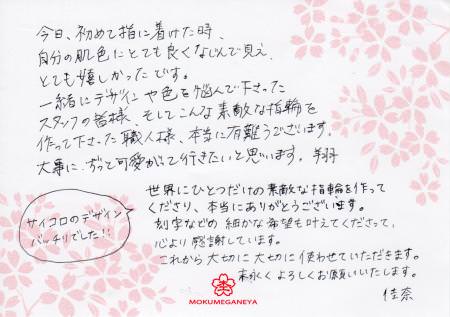 今日、初めて指に着けた時、
自分の肌色にとても良くなじんで見え、
とても嬉しかったです。
一緒にデザインや色を悩んで下さった
スタッフの皆様、そしてこんな素敵な指輪を
作って下さった職人様、本当に有難うございます。
大事に、ずっと可愛がって行きたいと思います。 翔
サイコロのデザイン
バッチリでした!!
世界にひとつだけの素敵な指輪を作って
くださり、本当にありがとうございます。
刻字などの細かな希望も叶えてくださって、
心より感謝しています。
これから大切に大切に使わせていただきます。
末永くよろしくお願いいたします。
佳奈
MOKUMEGANEYA